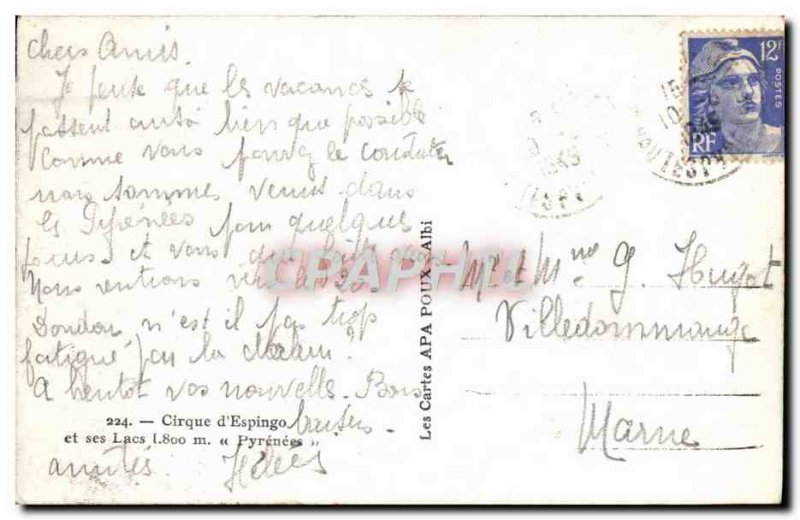 chers Amis
Je pense que les vacances se
passent aussi bien que possible
Comme vous pouvez le constater
nous sommes venus dans
les Pyrénées pour quelques
jours. et vous
Nous rentrons vers le 20
Doudou n'est il pas trop
fatigué par la chaleur?
A bientot vos nouvelles. Bons
baisers.
amitiés.
224. — Cirque d'Espingo
et ses Lacs 1.800 m. « Pyrénées »
Les Cartes APA POUX - Albi
CPAPHIL
12F
POSTES
RF
Mr et Mme G. Huyot
Villedommange
Marne